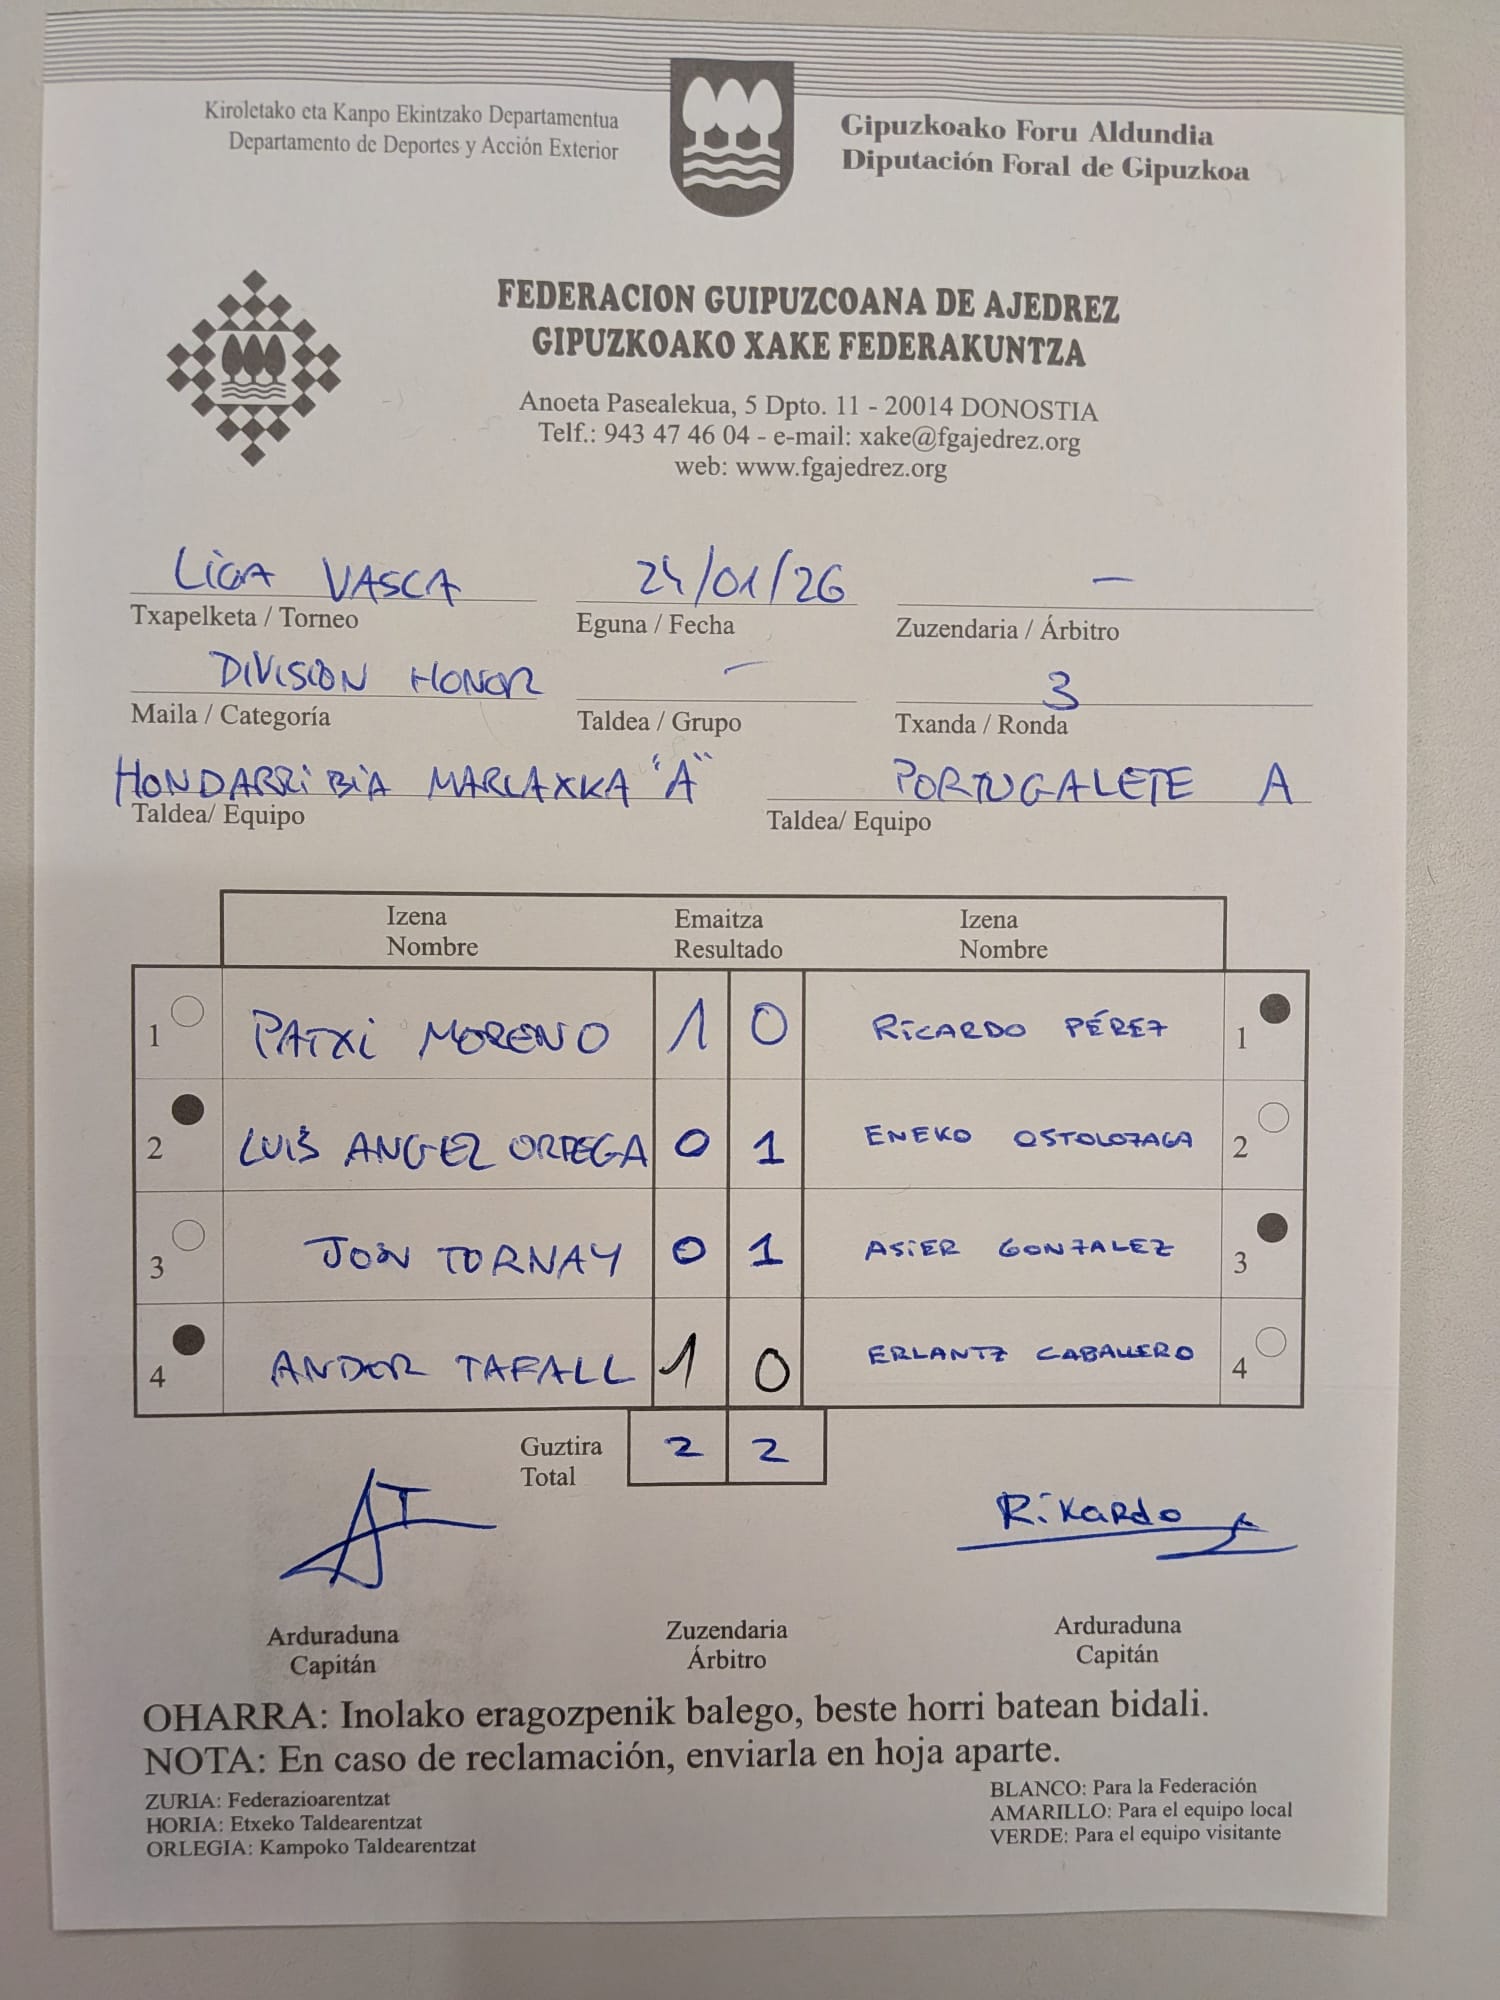 Kiroletako eta Kanpo Ekintzako Departamentua
Departamento de Deportes y Acción Exterior
Gipuzkoako Foru Aldundia
Diputación Foral de Gipuzkoa
FEDERACION GUIPUZCOANA DE AJEDREZ
GIPUZKOAKO XAKE FEDERAKUNTZA
Anoeta Pasealekua, 5 Dpto. 11 - 20014 DONOSTIA
Telf.: 943 47 46 04 - e-mail: xake@fgajedrez.org
web: www.fgajedrez.org
LiGA VASCA 24/01/26 —
Txapelketa / Torneo Eguna / Fecha Zuzendaria / Árbitro
DIVISION HONOR — 3
Maila / Categoría Taldea / Grupo Txanda / Ronda
HONDARRiBiA MARLAXKA "A" PORTUGALETE A
Taldea/ Equipo Taldea/ Equipo
Izena Emaitza Izena
Nombre Resultado Nombre
1 PATXi MORENO 1 0 RiCARDO PÉREZ 1
2 LUiS ANGEL ORTEGA 0 1 ENEKO OSTOLOZAGA 2
3 JON TORNAY 0 1 ASiER GONZALEZ 3
4 ANDER TAFALL 1 0 ERLANTZ CABALLERO 4
Guztira 2 2
Total
Rikardo
Arduraduna Zuzendaria Arduraduna
Capitán Árbitro Capitán
OHARRA: Inolako eragozpenik balego, beste horri batean bidali.
NOTA: En caso de reclamación, enviarla en hoja aparte.
ZURIA: Federazioarentzat BLANCO: Para la Federación
HORIA: Etxeko Taldearentzat AMARILLO: Para el equipo local
ORLEGIA: Kampoko Taldearentzat VERDE: Para el equipo visitante